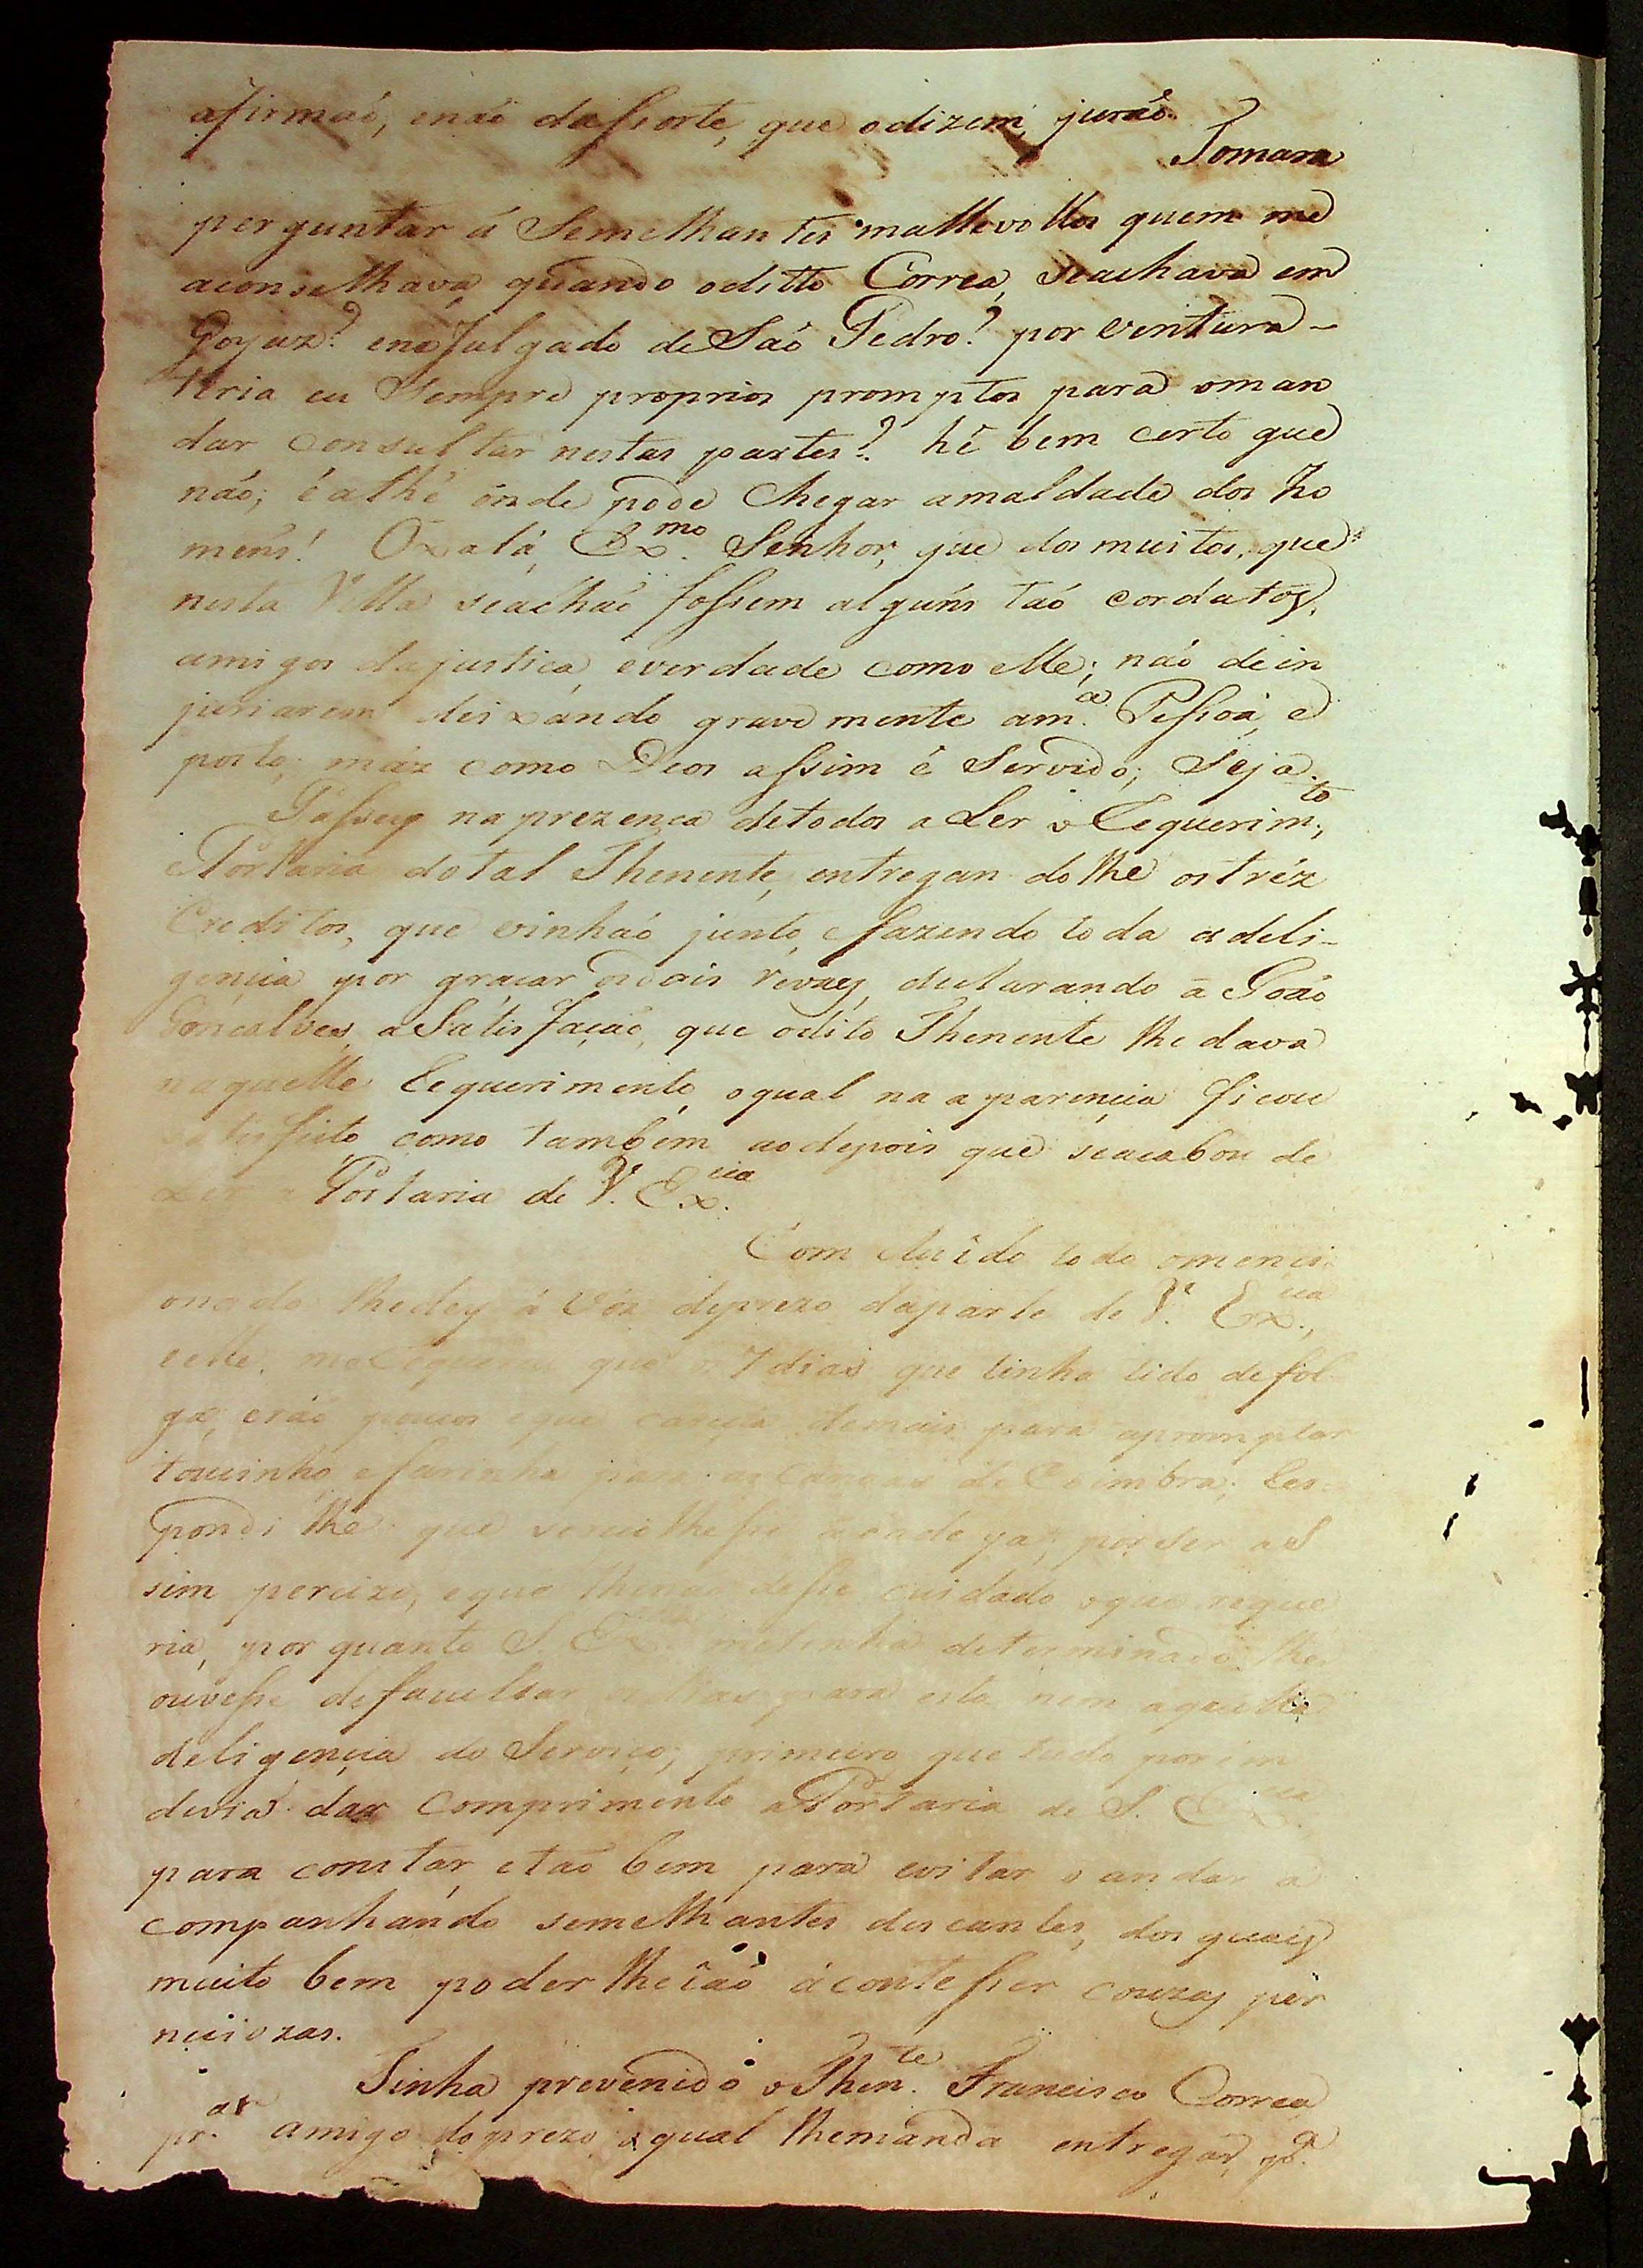 afirmaõ, enaõ dassorte, que odizem, juraõ.
Tomara
perguntar á Semelhantes mallevollos quem me
aconselhava, quando oditto Correa, seachava em
Goyaz? eno Julgado de Saõ Pedro? por ventura-
teria eu Sempre proprios promptos para oman
dar consultar nestas partes? hé bem certo que
naõ; é athé onde pode Chegar amaldade dos ho
mens! Oxalá, Ex.mo Senhor, que dos muitos, que
nesta Villa seachaõ fossem alguns taõ cordatos,
amigos dajustiça, everdade como elle; naõ dein
juriarem deixando grave mente am.a Pessoa, e
posto; máz como Deos assim é Servido; Seja.
Passey naprezença detodos a Ler o Requerim.to,
e Portaria dotal Thenente, entregan dolhe os tréz
Creditos, que vinhaõ junto, e fazendo toda adeli-
gencia por graçar os dois revaes, declarando a Joaõ
Gonçalves, a Satisfaçaõ, que odito Thenente lhe dava
naquelle Requerimento, oqual na aparencia ficou
satisfeito, como tambem ao depois que seacabou de
Ler a Portaria de V. Ex.cia
Com cluido todo omenci-
onado lhedey á vóz deprezo daparte de V. Ex.cia,
eelle, meRequereu que os 7 dias que tinha tido defol-
ga, eraõ poucos eque carecia demais para apromptar
toucinho, efarinha para as Canoas de Coimbra; Res-
pondi lhe que remetesse por ser as
sim percizo, eque lhenaõ desse cuidado oque reque
ria, por quanto S. Ex.cia metinha determinado lhe
ouvesse defacultar para esta nem aquella
deligencia do Serviço; primeiro que tudo porem
devia dar Comprimento aPortaria de S. Ex.cia
para constar, etaõ bem para evitar o andar a
companhando semelhantes descantes, dos quaes
muito bem poder lheiaõ ácontesser couzas per
niciozas.
Tinha prevenido o Then.te Francisco Correa
pr.ar amigo doprezo oqual lhemanda entregar, p.a